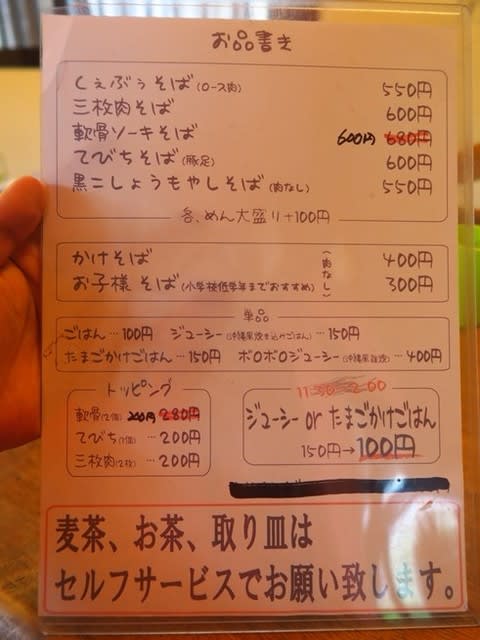 お品書き
くぇぶぅそば(ロース肉) 550円
三枚肉そば 600円
軟骨ソーキそば 600円 680円
てびちそば(豚足) 600円
黒こしょうもやしそば(肉なし) 550円
各、めん大盛り+100円
かけそば (肉なし) 400円
お子様そば(小学校低学年までおすすめ) 300円
単品
ごはん…100円 ジューシー(沖縄風炊き込みごはん)…150円
たまごかけごはん…150円 ボロボロジューシー(沖縄風雑炊)…400円
トッピング
軟骨(2個) 200円 280円
てびち(1個) …200円
三枚肉(2枚) …200円
11:30 2:00
ジューシー or たまごかけごはん
150円→100円
麦茶、お茶、取り皿は
セルフサービスでお願い致します。